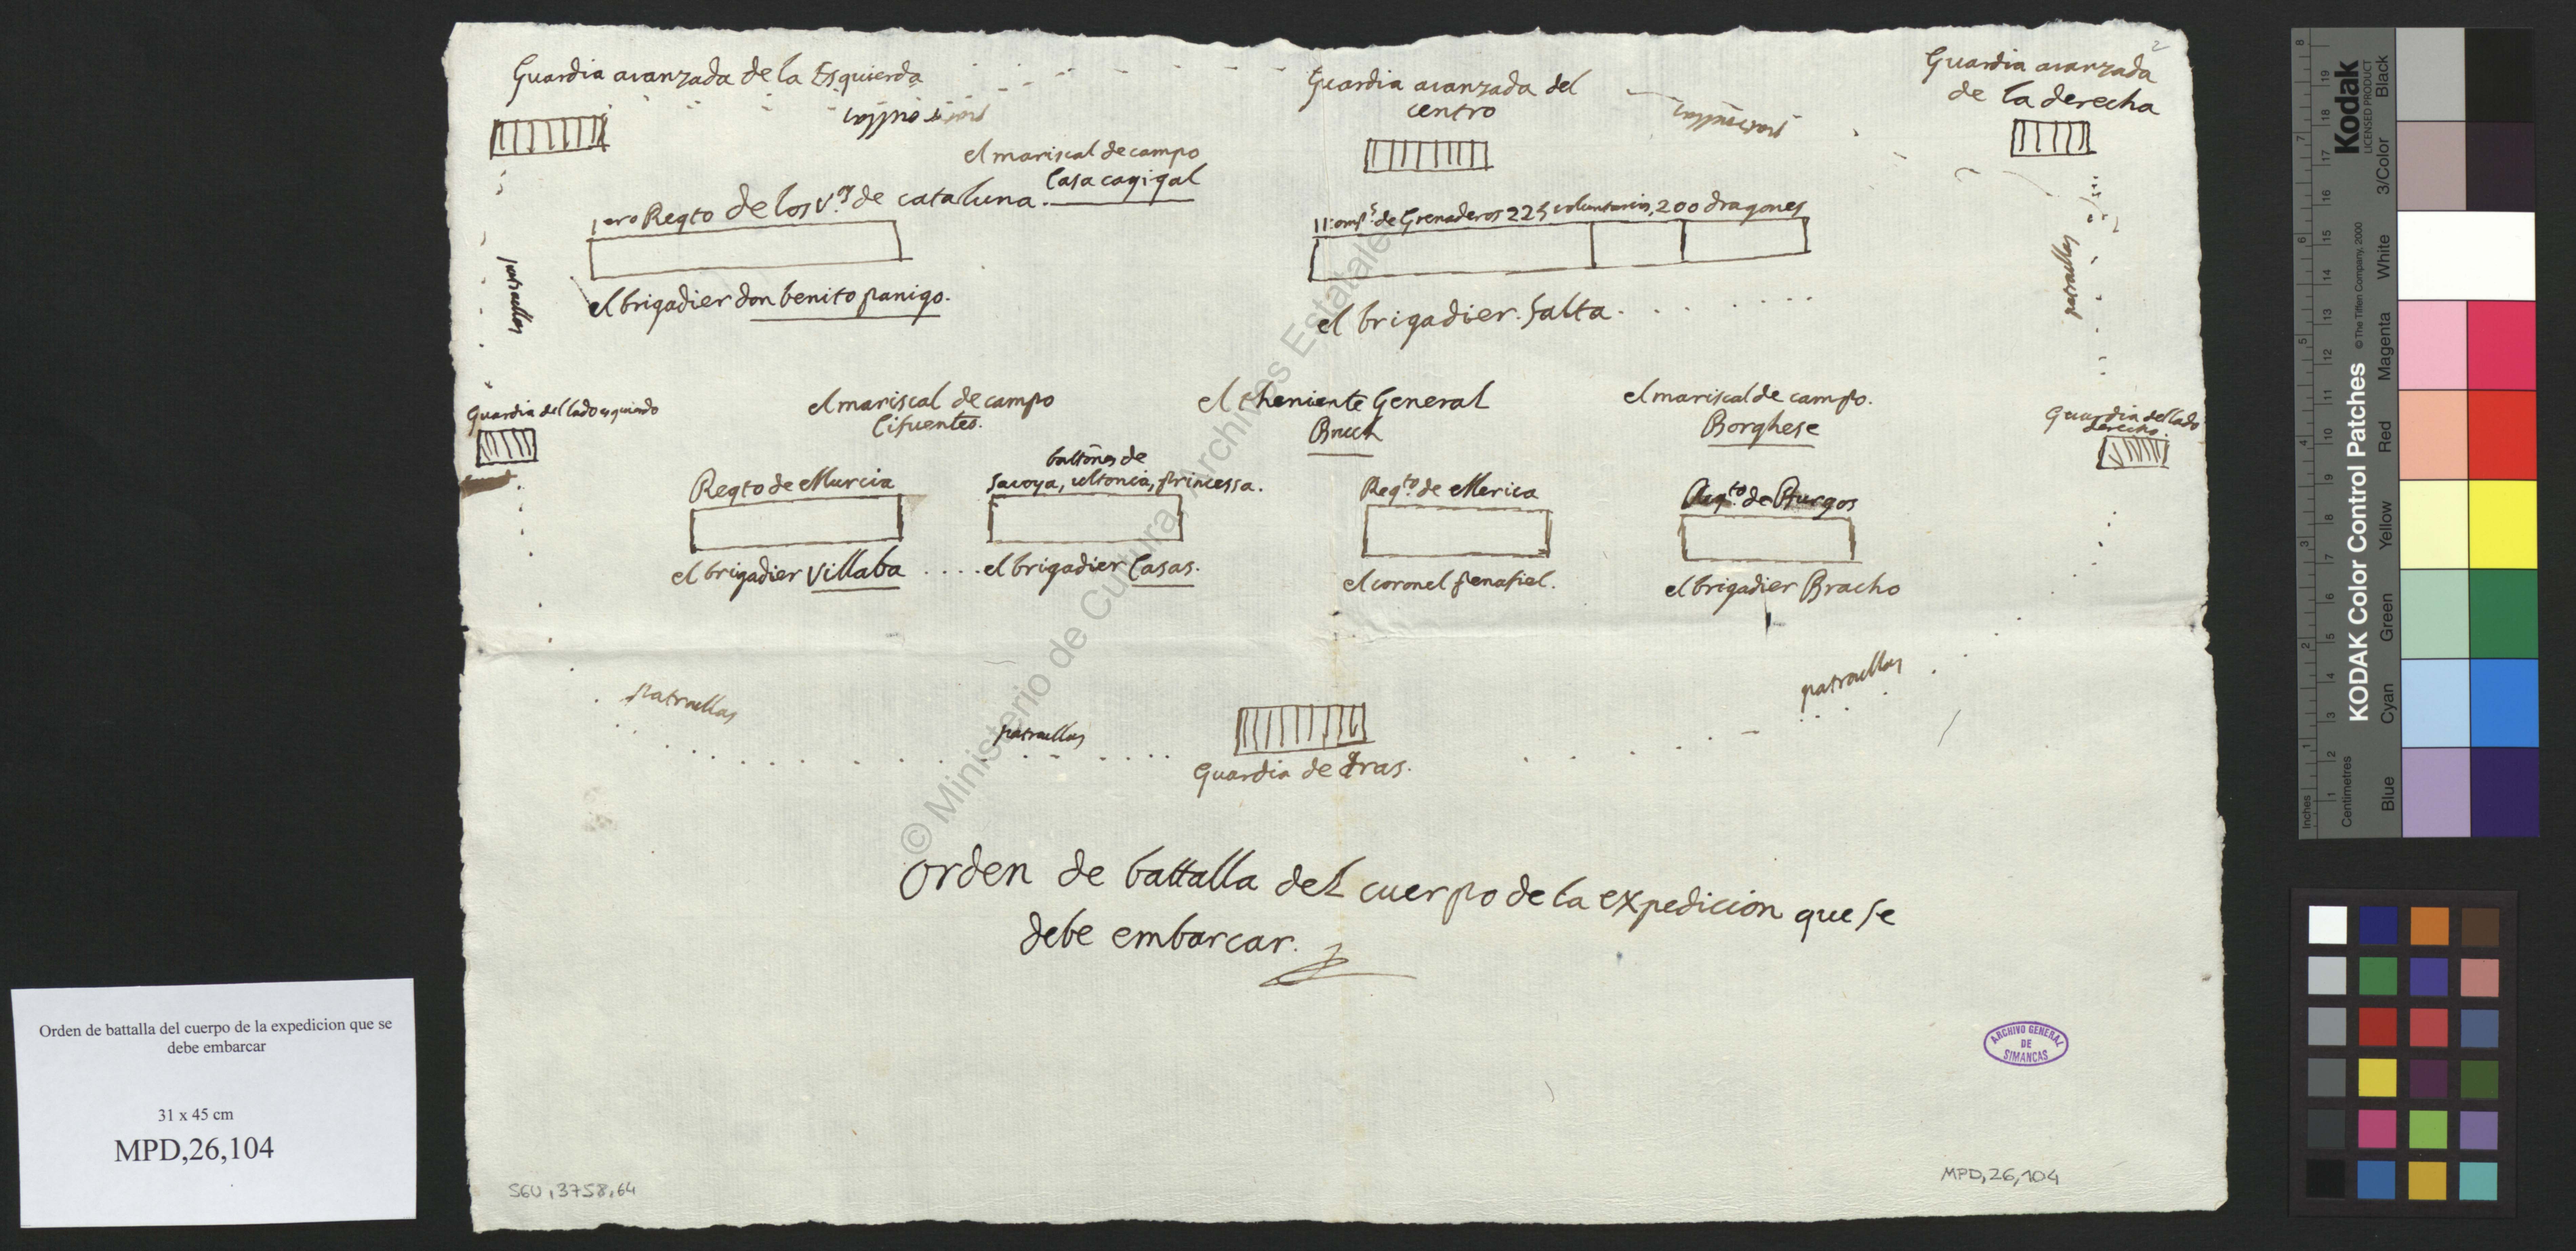 Guardia avanzada de la Esquierda
Guardia avanzada del
centro
Guardia avanzada
de la derecha
2
patrullas
patrullas
el mariscal de campo
Casa cagigal
1ero Regto de los V.os de cataluna.
11 comp.s de Grenaderos 225 voluntarios, 200 dragones
el brigadier don benito panigo.
el brigadier Salta.
patrullas
patrullas
Guardia del lado esquierdo
el mariscal de campo
Cifuentes.
el theniente General
Bruck
el mariscal de campo.
Borghese
Guardia del lado
derecho.
Regto de Murcia
baltones de
Savoya, ultonia, princessa.
Regto de Merica
Regto de Burgos
el brigadier Villaba
el brigadier Casas.
el coronel penafiel.
el brigadier Bracho
patrullas
patrullas
patrullas
Guardia de tras.
Orden de battalla del cuerpo de la expedicion que se
debe embarcar.
ARCHIVO GENERAL
DE
SIMANCAS
SGU,3758,64
MPD,26,104
© Ministerio de Cultura. Archivos Estatales
Orden de battalla del cuerpo de la expedicion que se
debe embarcar
31 x 45 cm
MPD,26,104
Kodak
LICENSED PRODUCT
KODAK Color Control Patches
© The Tiffen Company, 2000
Inches
Centimetres
Blue
Cyan
Green
Yellow
Red
Magenta
White
3/Color
Black